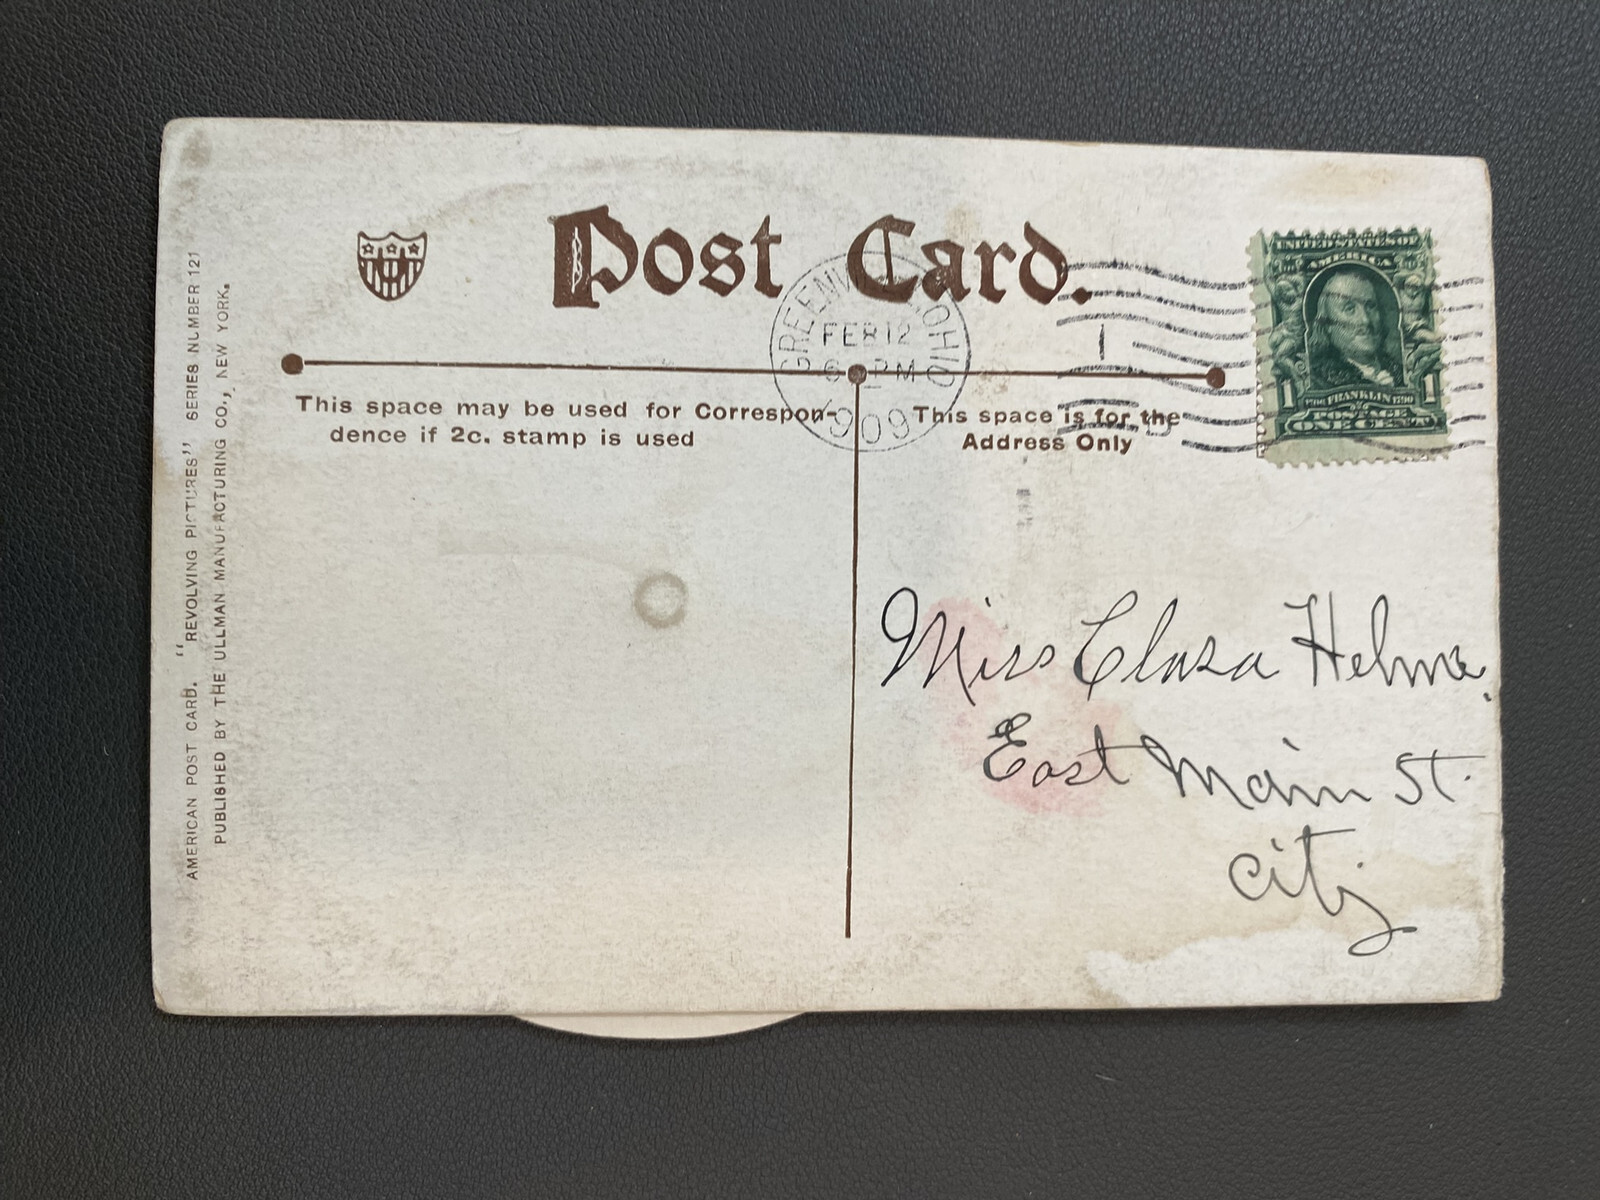 Post Card.
GREENV OHIO
FEB 12
6 PM
1909
1
UNITED STATES OF
AMERICA
1 1
1706 FRANKLIN 1790
POSTAGE
ONE CENT
This space may be used for Correspon-
dence if 2c. stamp is used
This space is for the
Address Only
Miss Clara Helm
East Main St.
City
AMERICAN POST CARD. "REVOLVING PICTURES" SERIES NUMBER 121
PUBLISHED BY THE ULLMAN MANUFACTURING CO., NEW YORK.